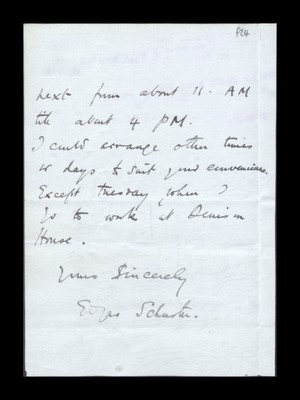 P24
next from about 11. AM
till about 4 PM.
I could arrange other times
or days to suit your convenience.
Except Tuesday when I
go to work at Denison
House.
Yours Sincerely
Edgar Schuster.